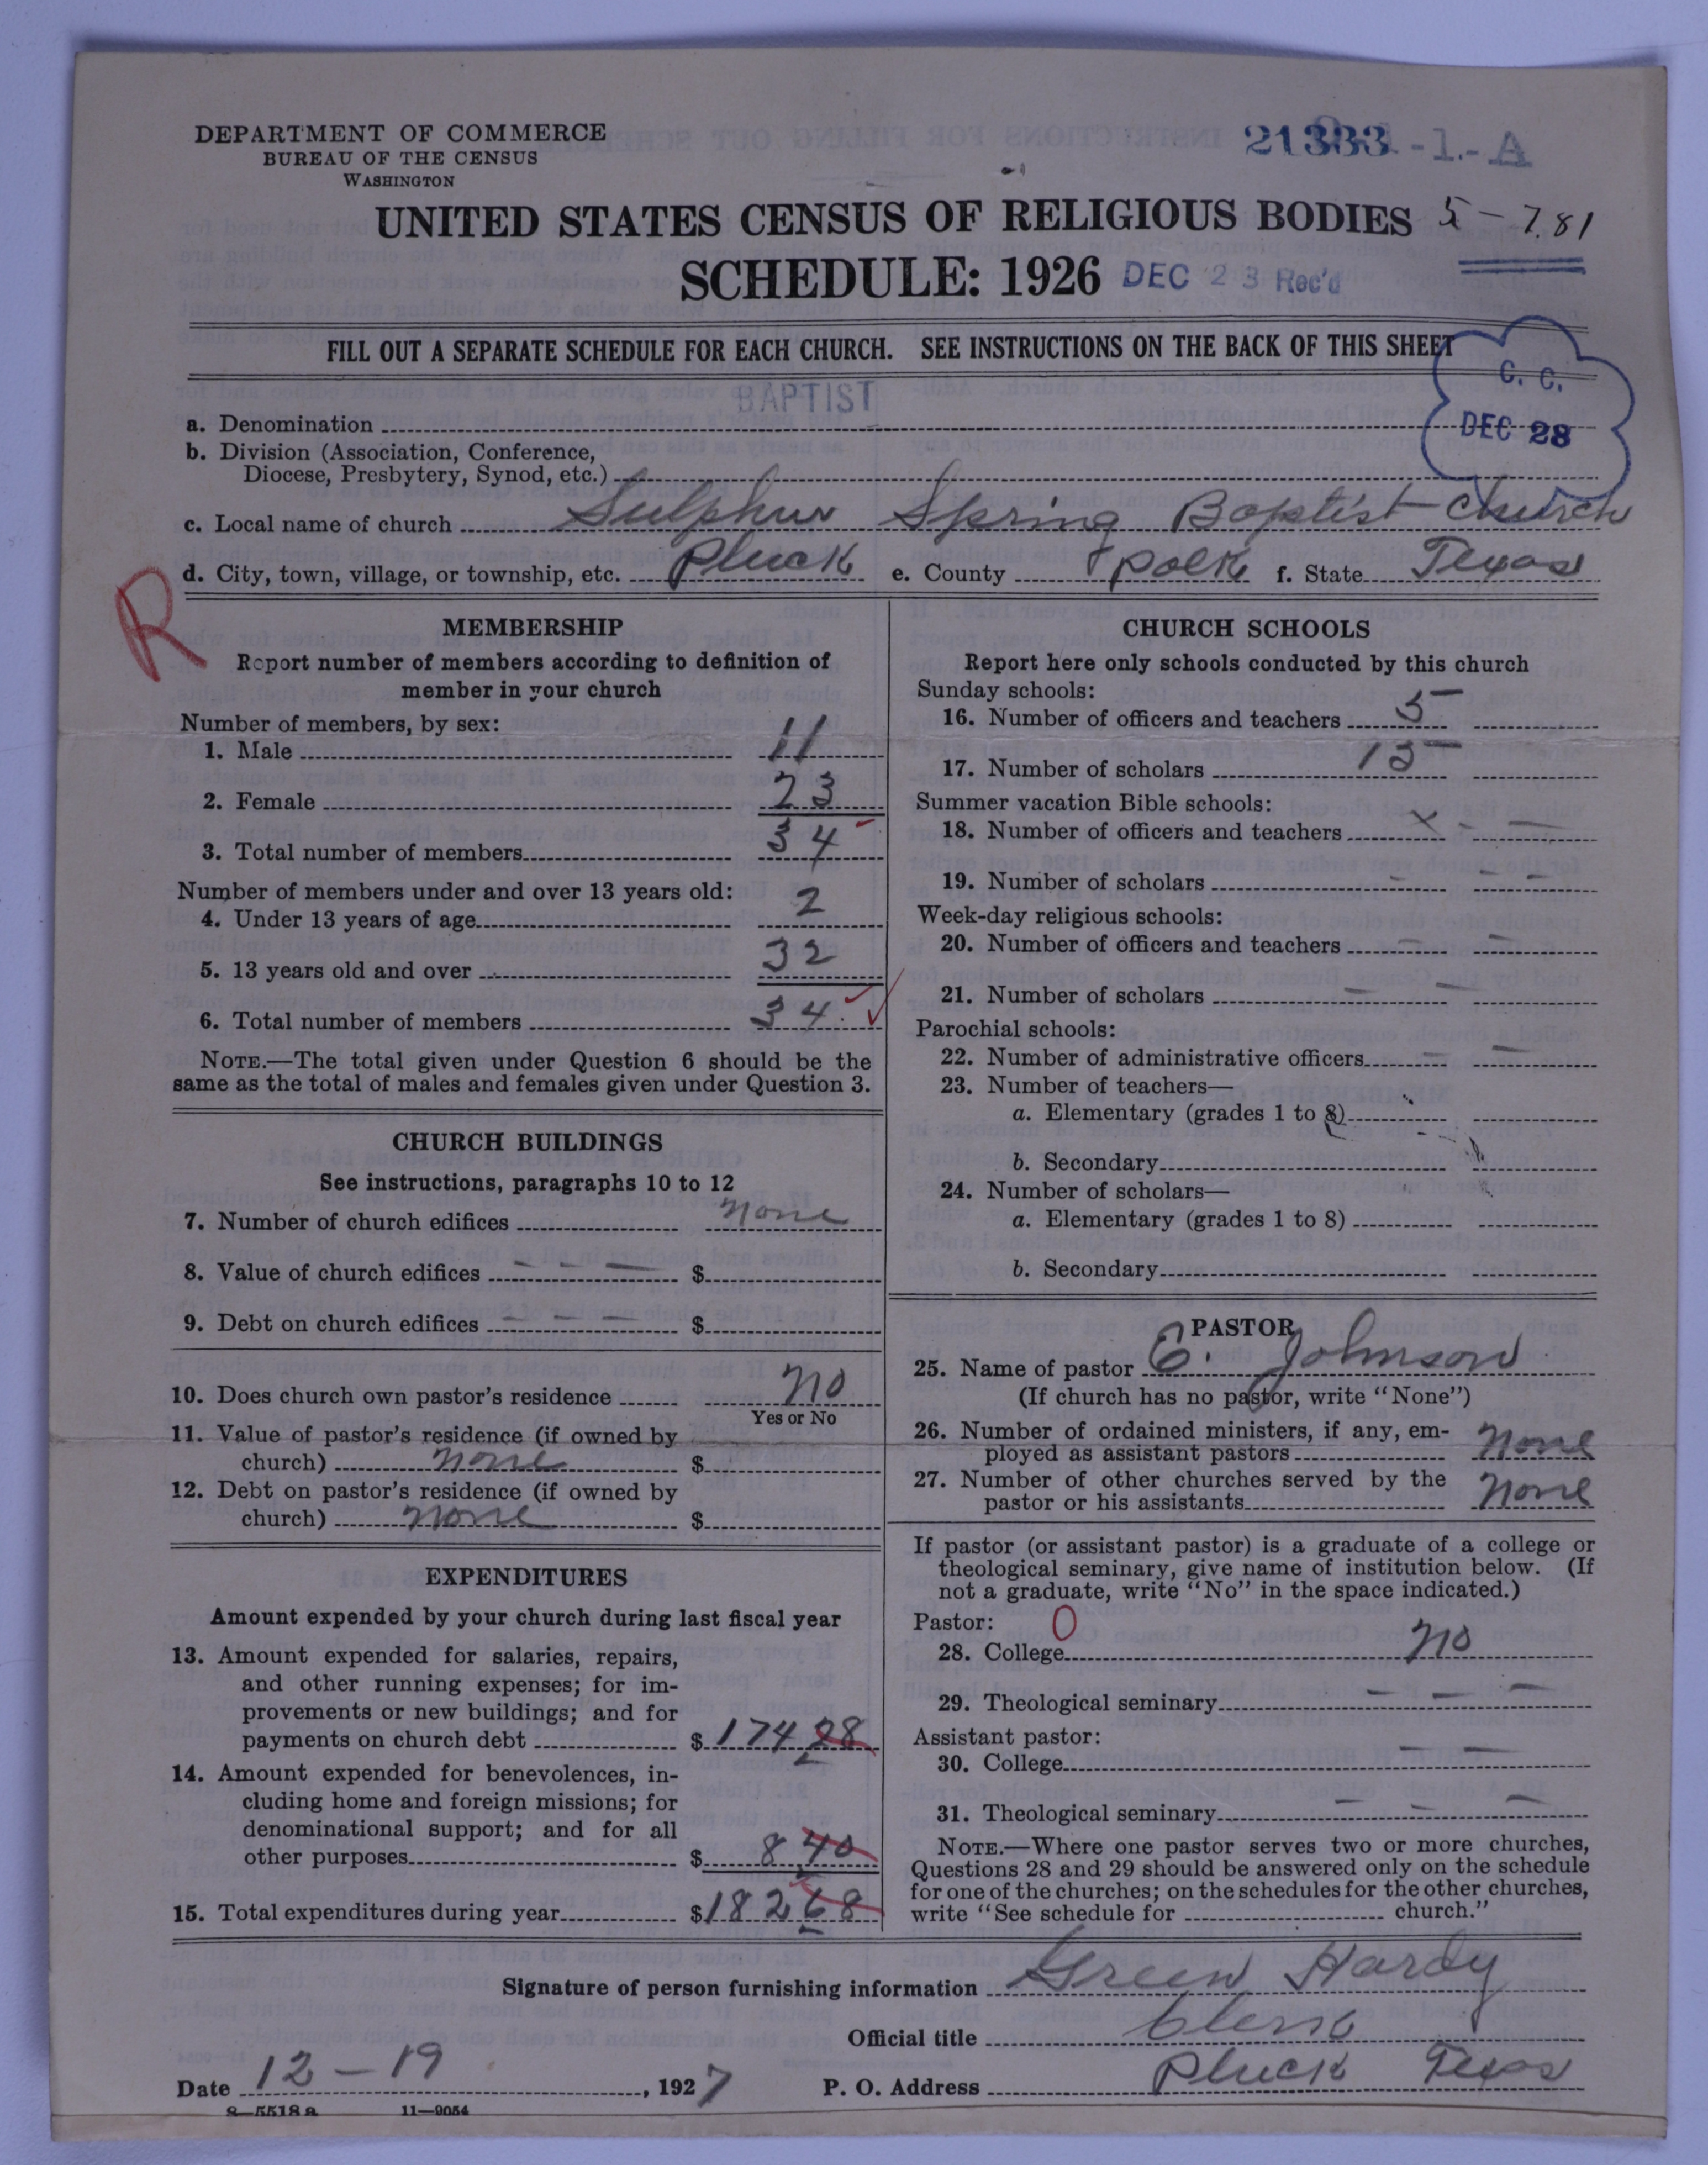 DEPARTMENT OF COMMERCE
BUREAU OF THE CENSUS
WASHINGTON
21383 -1.-A
UNITED STATES CENSUS OF RELIGIOUS BODIES 5-781
SCHEDULE: 1926 DEC 23 Rec'd
FILL OUT A SEPARATE SCHEDULE FOR EACH CHURCH. SEE INSTRUCTIONS ON THE BACK OF THIS SHEET
C. C.
DEC 28
BAPTIST
a. Denomination
b. Division (Association, Conference,
Diocese, Presbytery, Synod, etc.)
c. Local name of church Sulphur Spring Baptist Church
d. City, town, village, or township, etc. Pluck e. County Polk f. State Texas
R
MEMBERSHIP
Report number of members according to definition of
member in your church
Number of members, by sex:
1. Male 11
2. Female 23
3. Total number of members 34
Number of members under and over 13 years old:
4. Under 13 years of age 2
5. 13 years old and over 32
6. Total number of members 34
NOTE.—The total given under Question 6 should be the
same as the total of males and females given under Question 3.
CHURCH BUILDINGS
See instructions, paragraphs 10 to 12
7. Number of church edifices none
8. Value of church edifices — — — $
9. Debt on church edifices — — — $
10. Does church own pastor's residence no
Yes or No
11. Value of pastor's residence (if owned by
church) none $
12. Debt on pastor's residence (if owned by
church) none $
EXPENDITURES
Amount expended by your church during last fiscal year
13. Amount expended for salaries, repairs,
and other running expenses; for im-
provements or new buildings; and for
payments on church debt $ 174.28
14. Amount expended for benevolences, in-
cluding home and foreign missions; for
denominational support; and for all
other purposes $ 8.40
15. Total expenditures during year $182.68
CHURCH SCHOOLS
Report here only schools conducted by this church
Sunday schools:
16. Number of officers and teachers 5
17. Number of scholars 15
Summer vacation Bible schools:
18. Number of officers and teachers x - —
19. Number of scholars - - -
Week-day religious schools:
20. Number of officers and teachers — —
21. Number of scholars — —
Parochial schools:
22. Number of administrative officers — —
23. Number of teachers—
a. Elementary (grades 1 to 8)
b. Secondary
24. Number of scholars—
a. Elementary (grades 1 to 8)
b. Secondary
PASTOR
25. Name of pastor E. Johnson
(If church has no pastor, write "None")
26. Number of ordained ministers, if any, em-
ployed as assistant pastors none
27. Number of other churches served by the
pastor or his assistants none
If pastor (or assistant pastor) is a graduate of a college or
theological seminary, give name of institution below. (If
not a graduate, write "No" in the space indicated.)
Pastor: 0
28. College no
29. Theological seminary — — —
Assistant pastor:
30. College — —
31. Theological seminary — — —
NOTE.—Where one pastor serves two or more churches,
Questions 28 and 29 should be answered only on the schedule
for one of the churches; on the schedules for the other churches,
write "See schedule for church."
Signature of person furnishing information Green Hardy
Official title Clerk
Date 12-19, 1927 P. O. Address Pluck Texas
8—5518a 11—9054